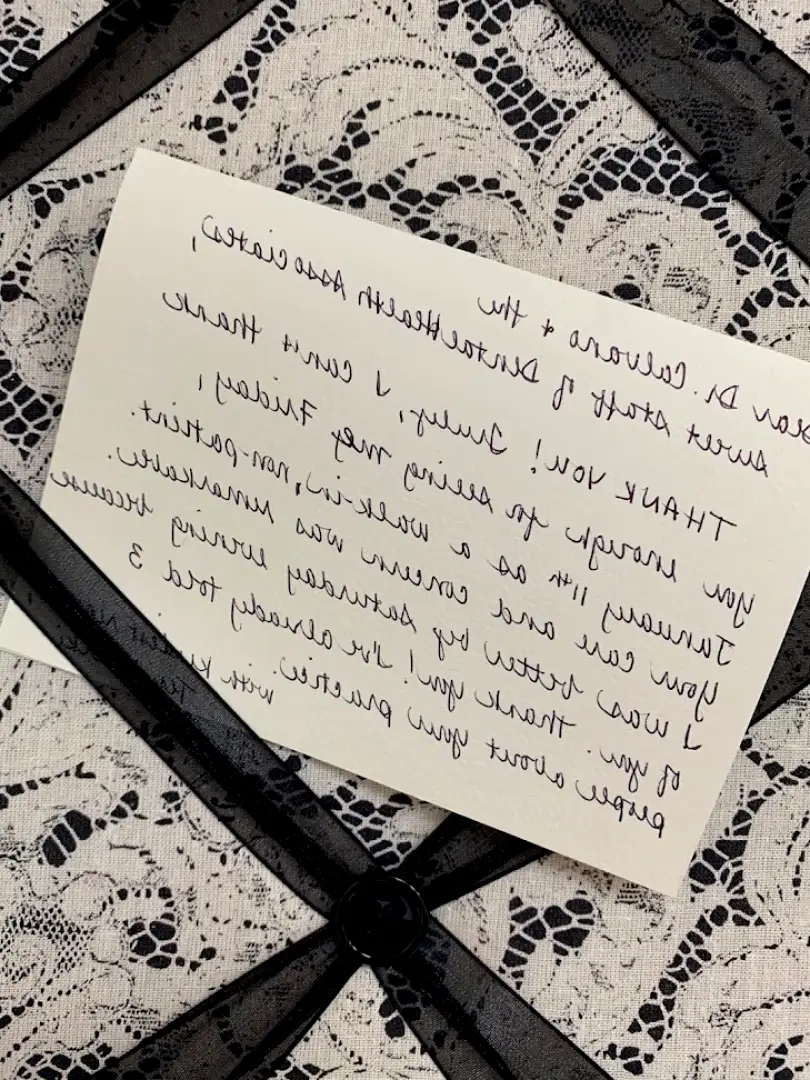 Dear Dr. Calvano & the
sweet staff of Dental Health Associates,
THANK YOU! Truly, I can't thank
you enough for seeing me Friday,
January 11th as a walk-in, non-patient.
Your care and concern was remarkable.
I was better by Saturday evening because
of you. Thank you! I've already told 3
people about your practice.
with